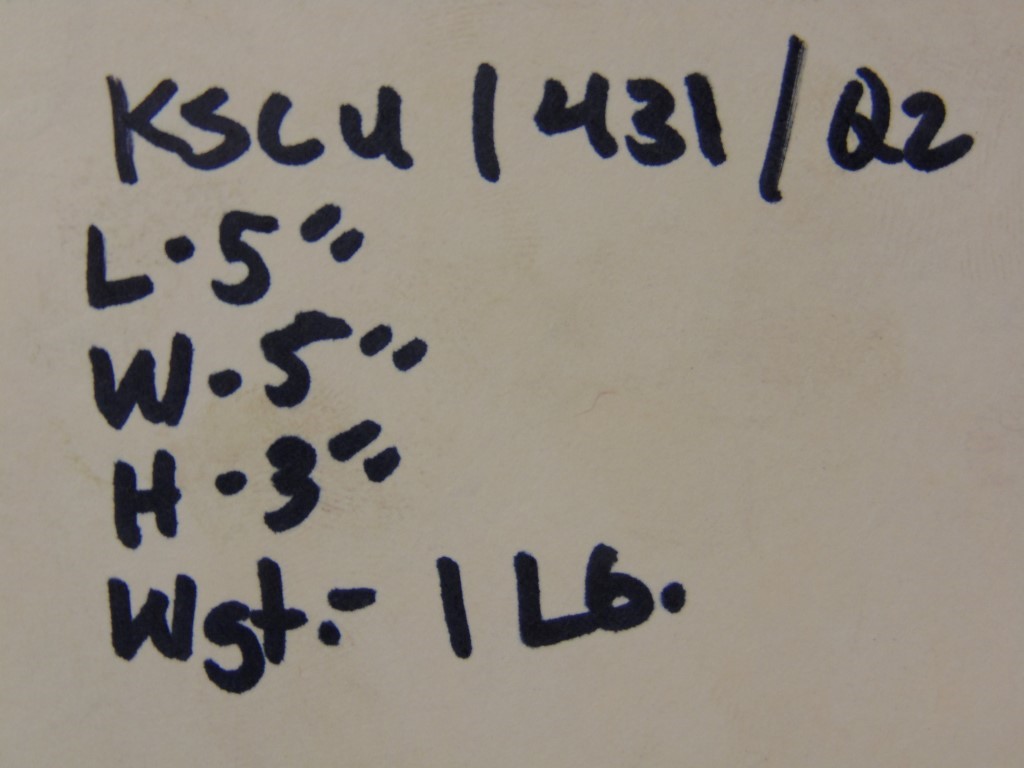 KSCU 1431/Q2
L·5"
W·5"
H·3"
Wgt.- 1 Lb.